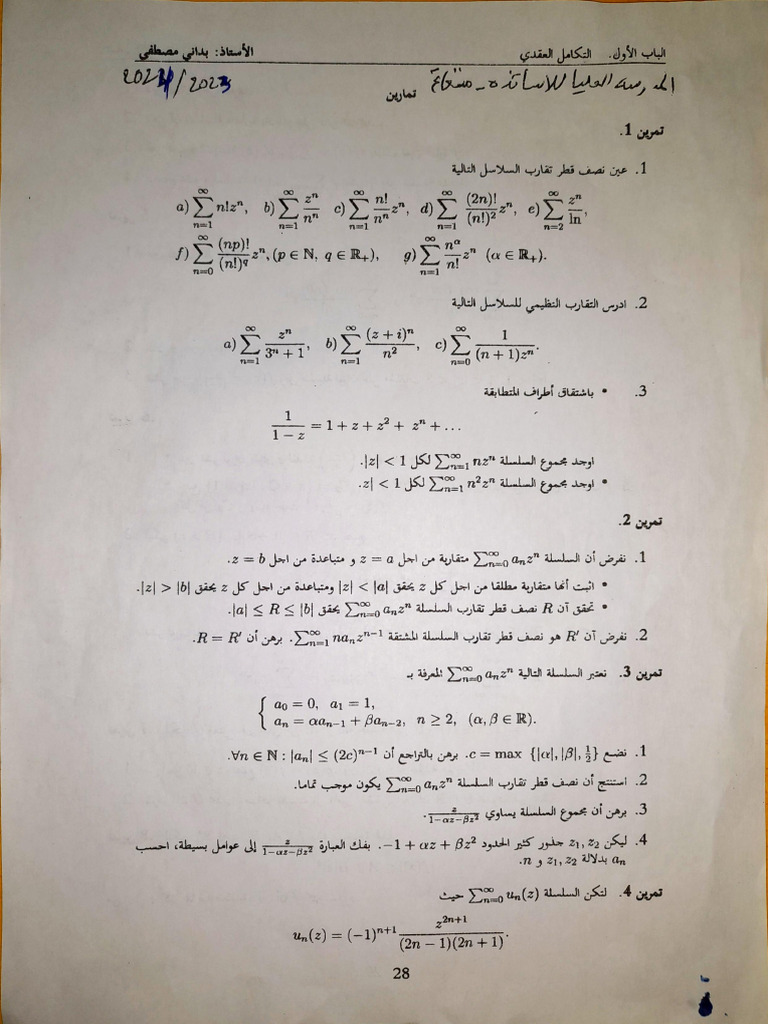 الباب الأول. التكامل العقدي الأستاذ: بداني مصطفى
المدرسة العليا للاساتذة - مستغانم 2023/2024
تمارين
تمرين 1.
1. عين نصف قطر تقارب السلاسل التالية
a) ∑_{n=1}^{∞} n!z^n, b) ∑_{n=1}^{∞} z^n/n^n c) ∑_{n=1}^{∞} n!/n^n z^n, d) ∑_{n=1}^{∞} (2n)!/(n!)^2 z^n, e) ∑_{n=2}^{∞} z^n/ln,
f) ∑_{n=0}^{∞} (np)!/(n!)^q z^n, (p ∈ ℕ, q ∈ ℝ_+), g) ∑_{n=1}^{∞} n^α/n! z^n (α ∈ ℝ_+).
2. ادرس التقارب النظيمي للسلاسل التالية
a) ∑_{n=1}^{∞} z^n/(3^n + 1), b) ∑_{n=1}^{∞} (z + i)^n/n^2, c) ∑_{n=0}^{∞} 1/((n + 1)z^n).
3. • باشتقاق أطراف المتطابقة
1/(1 − z) = 1 + z + z^2 + z^n + ...
اوجد مجموع السلسلة ∑_{n=1}^{∞} nz^n لكل |z| < 1.
• اوجد مجموع السلسلة ∑_{n=1}^{∞} n^2z^n لكل z| < 1.
تمرين 2.
1. نفرض أن السلسلة ∑_{n=0}^{∞} a_nz^n متقاربة من اجل z = a و متباعدة من اجل z = b.
• اثبت أنها متقاربة مطلقا من اجل كل z يحقق |z| < |a| ومتباعدة من اجل كل z يحقق |z| > |b|.
• تحقق آن R نصف قطر تقارب السلسلة ∑_{n=0}^{∞} a_nz^n يحقق |a| ≤ R ≤ |b|.
2. نفرض آن R′ هو نصف قطر تقارب السلسلة المشتقة ∑_{n=1}^{∞} na_nz^{n−1}. برهن أن R = R′.
تمرين 3. نعتبر السلسلة التالية ∑_{n=0}^{∞} a_nz^n المعرفة بـ
{ a_0 = 0, a_1 = 1,
a_n = αa_{n−1} + βa_{n−2}, n ≥ 2, (α, β ∈ ℝ).
1. نضع c = max {|α|, |β|, 1/2}. برهن بالتراجع أن ∀n ∈ ℕ : |a_n| ≤ (2c)^{n−1}.
2. استنتج أن نصف قطر تقارب السلسلة ∑_{n=0}^{∞} a_nz^n يكون موجب تماما.
3. برهن أن مجموع السلسلة يساوي z/(1−αz−βz^2).
4. ليكن z_1, z_2 جذور كثير الحدود −1 + αz + βz^2. بفك العبارة z/(1−αz−βz^2) إلى عوامل بسيطة، احسب
a_n بدلالة z_1, z_2 و n.
تمرين 4. لتكن السلسلة ∑_{n=0}^{∞} u_n(z) حيث
u_n(z) = (−1)^{n+1} z^{2n+1}/((2n − 1)(2n + 1)).
28